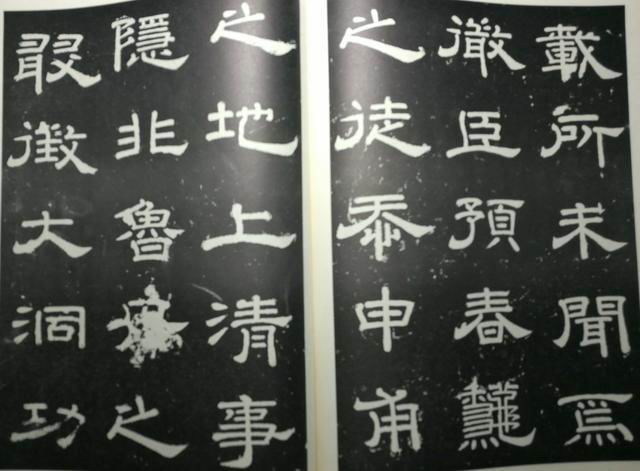 載所未聞焉
微臣預春龝
之徒忝申甫
之地上清事
隱非魯之
敢徵大洞功